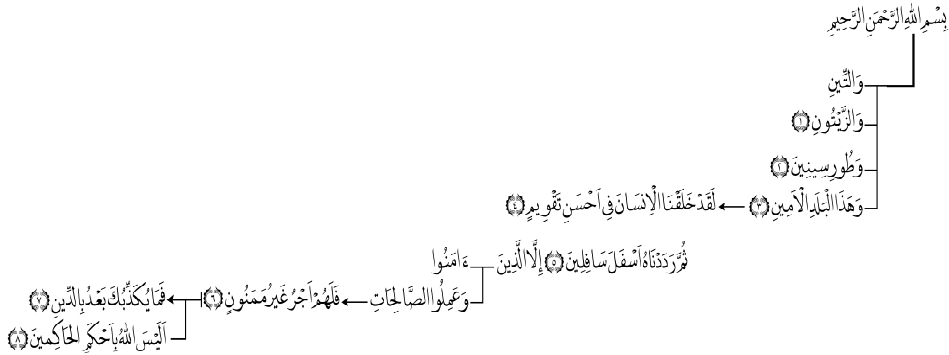 بِسْمِ اللهِ الرَّحْمَنِ الرَّحِيمِ
وَالتِّينِ
وَالزَّيْتُونِ ١
وَطُورِ سِينِينَ ٢
وَهَذَا الْبَلَدِ الْأَمِينِ ٣ لَقَدْ خَلَقْنَا الْإِنسَانَ فِي أَحْسَنِ تَقْوِيمٍ ٤
ثُمَّ رَدَدْنَاهُ أَسْفَلَ سَافِلِينَ ٥ إِلَّا الَّذِينَ ءَامَنُوا
وَعَمِلُوا الصَّالِحَاتِ فَلَهُمْ أَجْرٌ غَيْرُ مَمْنُونٍ ٦ فَمَا يُكَذِّبُكَ بَعْدُ بِالدِّينِ ٧
أَلَيْسَ اللهُ بِأَحْكَمِ الْحَاكِمِينَ ٨